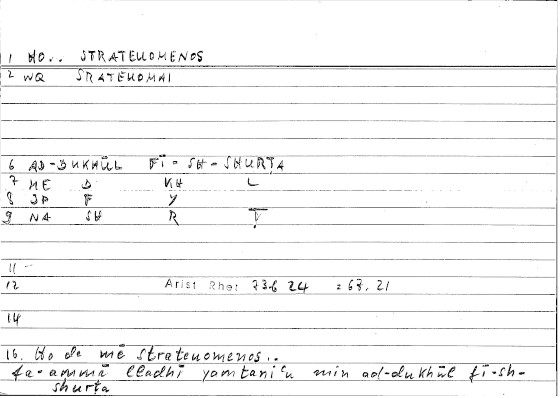 1 HO.. STRATEUOMENOS
2 WQ SRATEUOMAI
6 AD-DUKHŪL FĪ-SH-SHURṬA
7 ME D KH L
8 JP F Y
9 NA SH R Ṭ
11 -
12 Arist Rhet 73b 24 = 67, 21
14
16. Ho de mē strateuomenos..
fa-ammā lladhī yamtaniʿu min ad-dukhūl fī-sh-
shurṭa